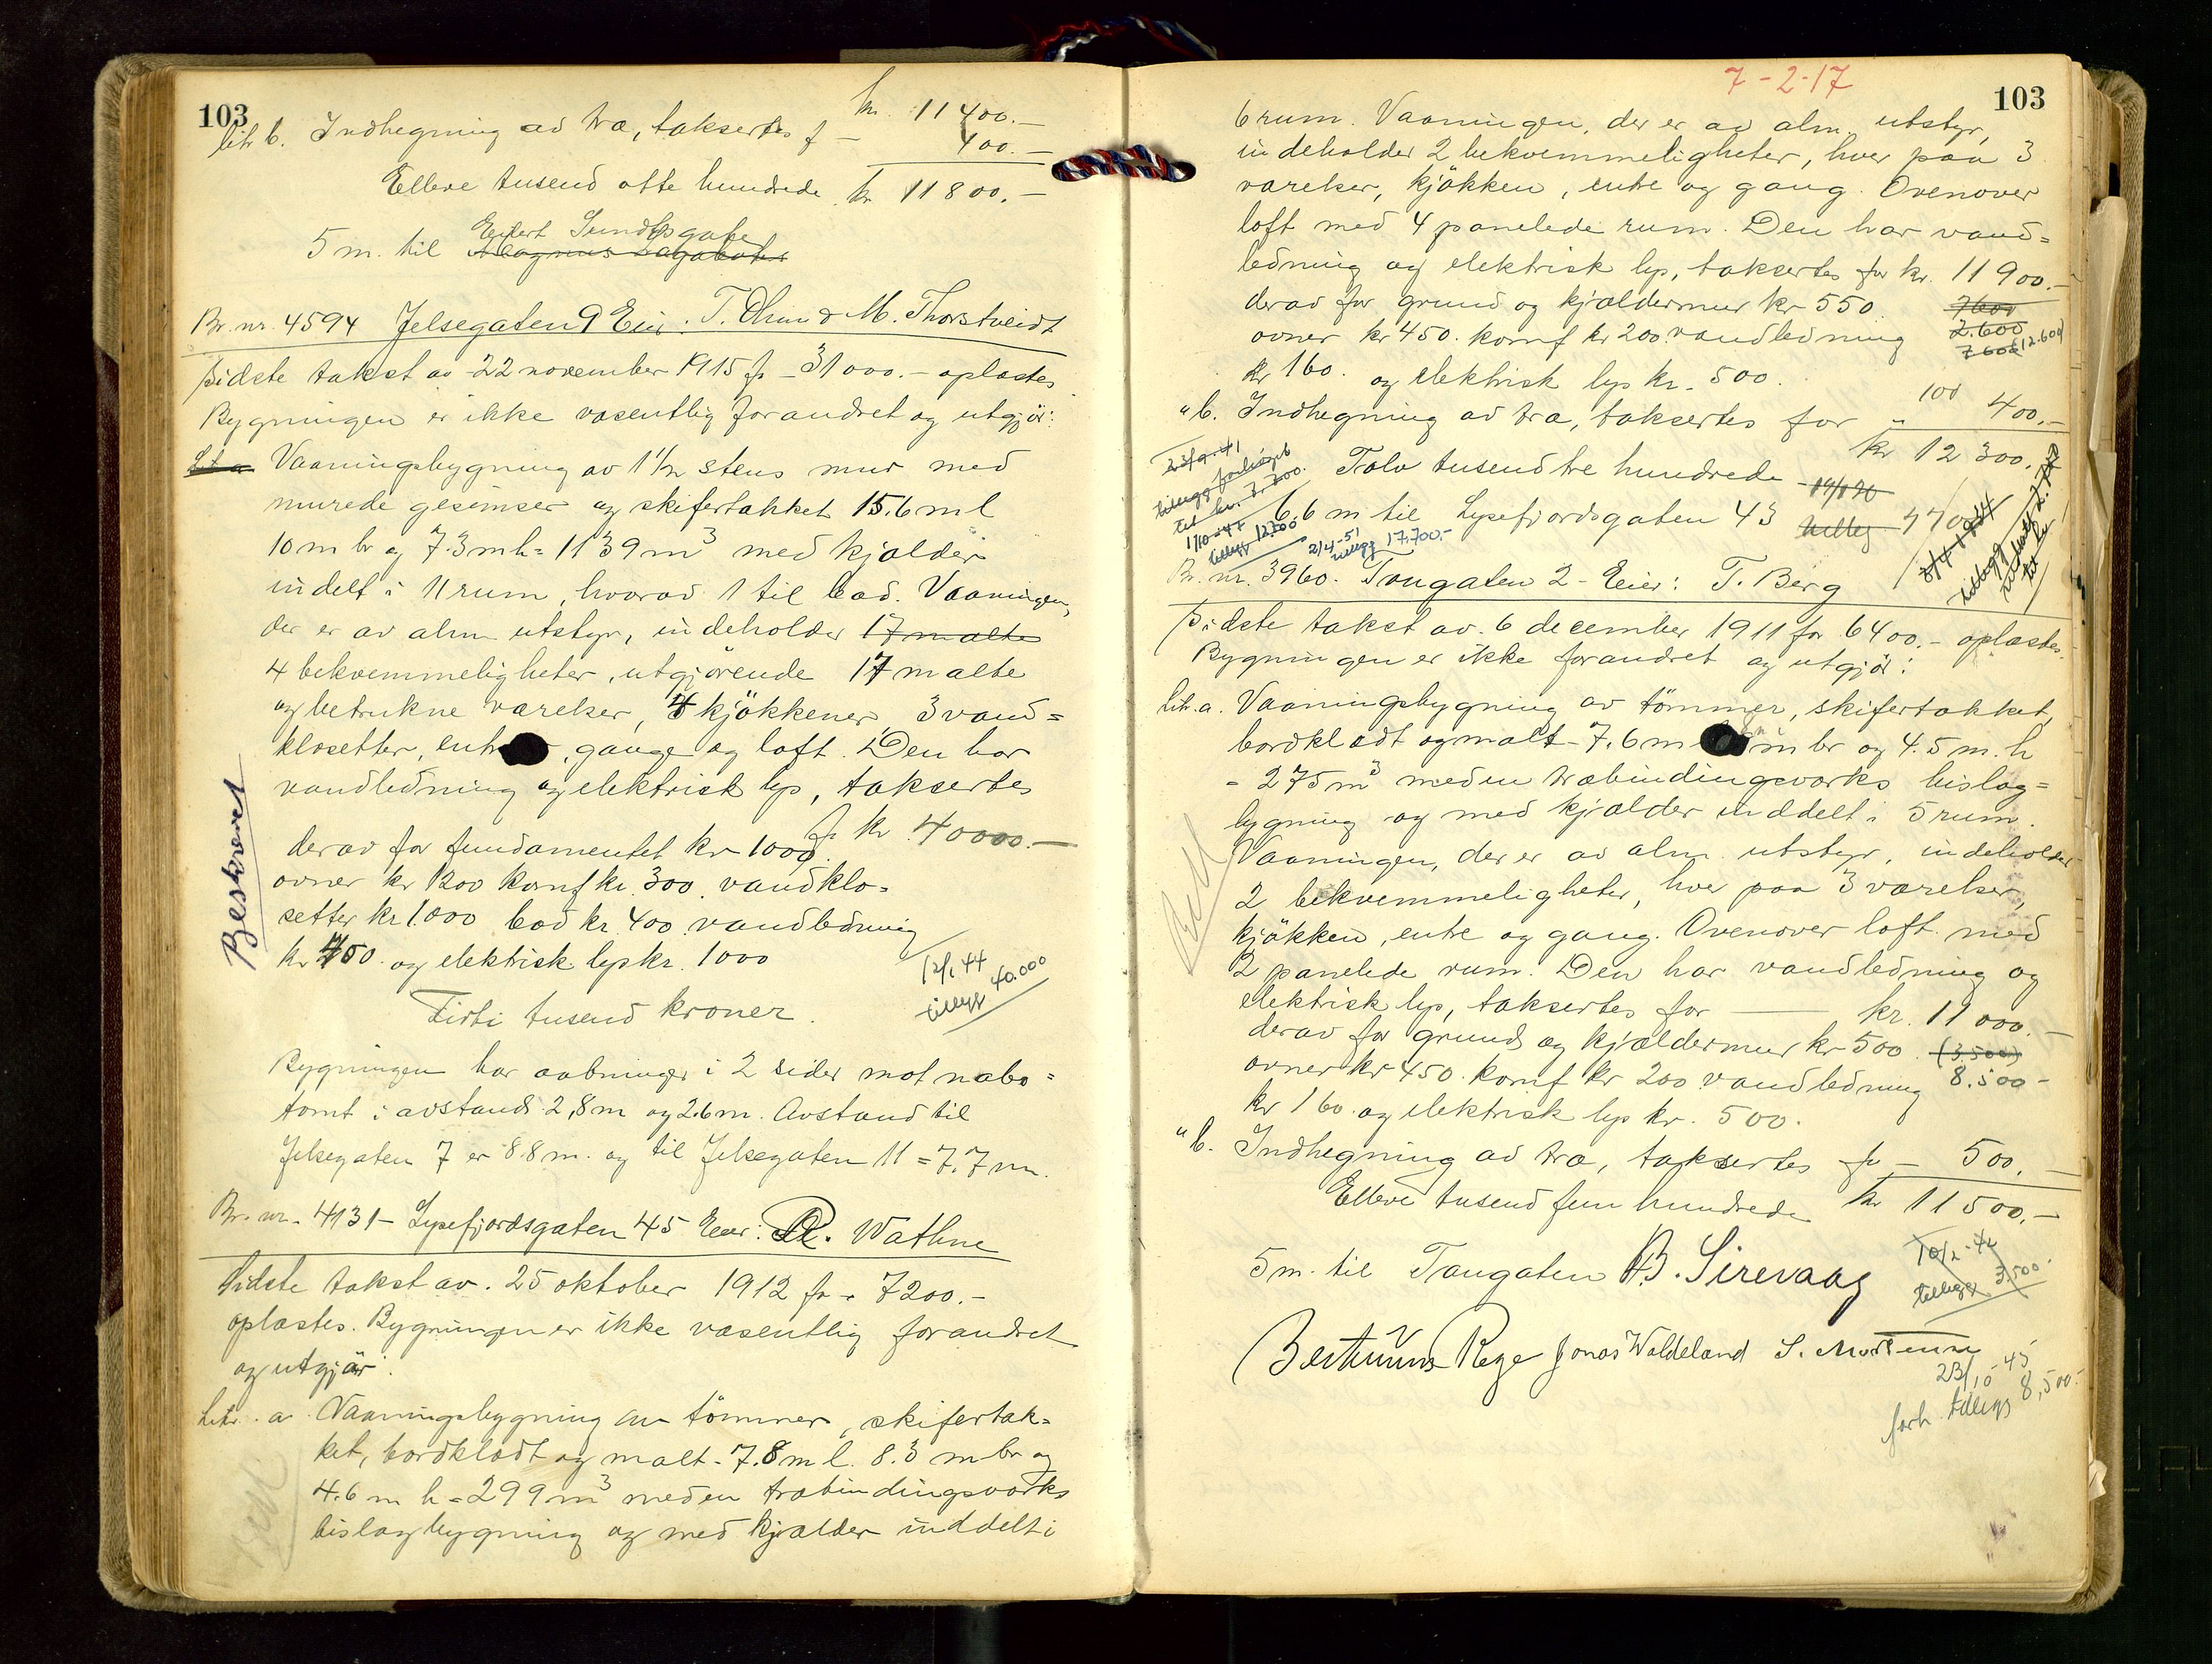 103
kr. 11400.-
litr b. Indhegning av træ, taksertes f - 400.-
Elleve tusend otte hundrede kr 11800.-
Eilert Sundtsgate
5 m. til
Br. nr. 4594 Jelsegaten 9 Eier: T. Ohm & M. Thorstveidt
Sidste takst av 22 november 1915 fr - 31000.- oplæstes
Bygningen er ikke væsentlig forandret og utgjör:
Lit a Vaaningsbygning av 1 1/2 stens mur med
murede gesimser og skifertækket 15.6 m l
10 m br og 7.3 m h = 1139 m3 med kjælder
inddelt i 11 rum, hvorav 1 til bad. Vaaningen,
der er av alm utstyr, indeholder 17 malte
4 bekvemmeligheter, utgjörende 17 malte
og betrukne værelser, 4 kjökkener 3 vand=
klosetter, entr , gange og loft. Den har
vandledning og elektrisk lys, taksertes
fr kr 40000.-
derav for fundamentet kr 1000.
ovner kr 1200 komf kr. 300. vandklo=
setter kr 1.000 bad kr. 400 vandledning
kr 750. og elektrisk lys kr. 1000
Beskrevet
12/1 44
tillegg 40.000
Firti tusend kroner.
Bygningen har aabninger i 2 sider mot nabo=
tomt i avstand 2,8 m og 2.6 m. Avstand til
Jelsegaten 7 er 8.8 m. og til Jelsegaten 11 = 7.7 m.
Br. nr. 4131 - Lysefjordsgaten 45 Eier: R. Wathne
Sidste takst av. 25 oktober 1912 fr - 7200.-
oplæstes. Bygningen er ikke væsentlig forandret
og utgjör.
Litr. a Vaaningsbygning av tömmer, skifertæk=
ket, bordklædt og malt - 7.8 m l. 8.3 m br og
4.6 m h = 299 m3 med en træbindingsverks
bislagbygning og med kjælder inddelt i
7-2-17
103
6 rum. Vaaningen, der er av alm. utstyr,
indeholder 2 bekvemmeligheter, hver paa 3
værelser, kjökken, entre og gang. Ovenover
loft med 4 panelede rum. Den har vand=
ledning og elektrisk lys, taksertes for kr. 11900.-
derav for grund og kjældermur kr 550. 7600
ovner kr 450. komf kr 200. vandledning 2.600
7600 (12.600)
kr 160. og elektrisk lys kr. 500.
" b. Indhegning av træ, taksertes for " 100 400.-
kr 12300.-
Tolv tusend tre hundrede
6,6 m til Lysefjordsgaten 43
1/10-44
tillegg 12.700
2/4-51
tillegg 17.700.-
Br. nr. 3960. Tougaten 2 - Eier: T. Berg
Sidste takst av. 6 december 1911 for 6400.- oplæstes.
Bygningen er ikke forandret og utgjör:
Litr. a. Vaaningsbygning av tömmer, skifertækket,
bordklædt og malt - 7.6 m m br og 4.5 m. h
- 275 m3 med en træbindingsverks bislag=
bygning og med kjælder inddelt i 5 rum.
Vaaningen, der er av alm. utstyr, indeholder
2 bekvemmeligheter, hver paa 3 værelser,
kjökken, entre og gang. Ovenover loft med
2 panelede rum. Den har vandledning og
elektrisk lys, taksertes for kr. 11000.-
derav for grund og kjældermur kr 500. (3500)
ovner kr 450. komf kr 200 vandledning 8.500-
kr 160. og elektrisk lys kr. 500.
" b. Indhegning av træ, taksertes fr - 500.-
Elleve tusend fem hundrede kr 11500.-
5 m. til Tougaten B. Sirevaag
10/2-42
tillegg 3,500.-
Berthinius Rege Jonas Woldeland S. Mortensen
23/10-45
forh. tillegg 8,500.-